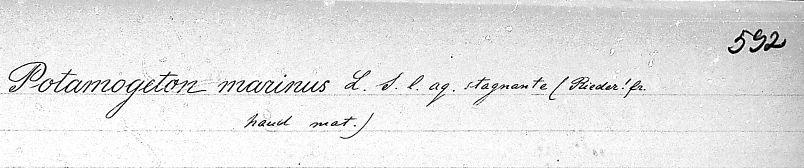 592
Potamogeton marinus L. S. l. aq. stagnante (Rieder! fr.
haud mat.)